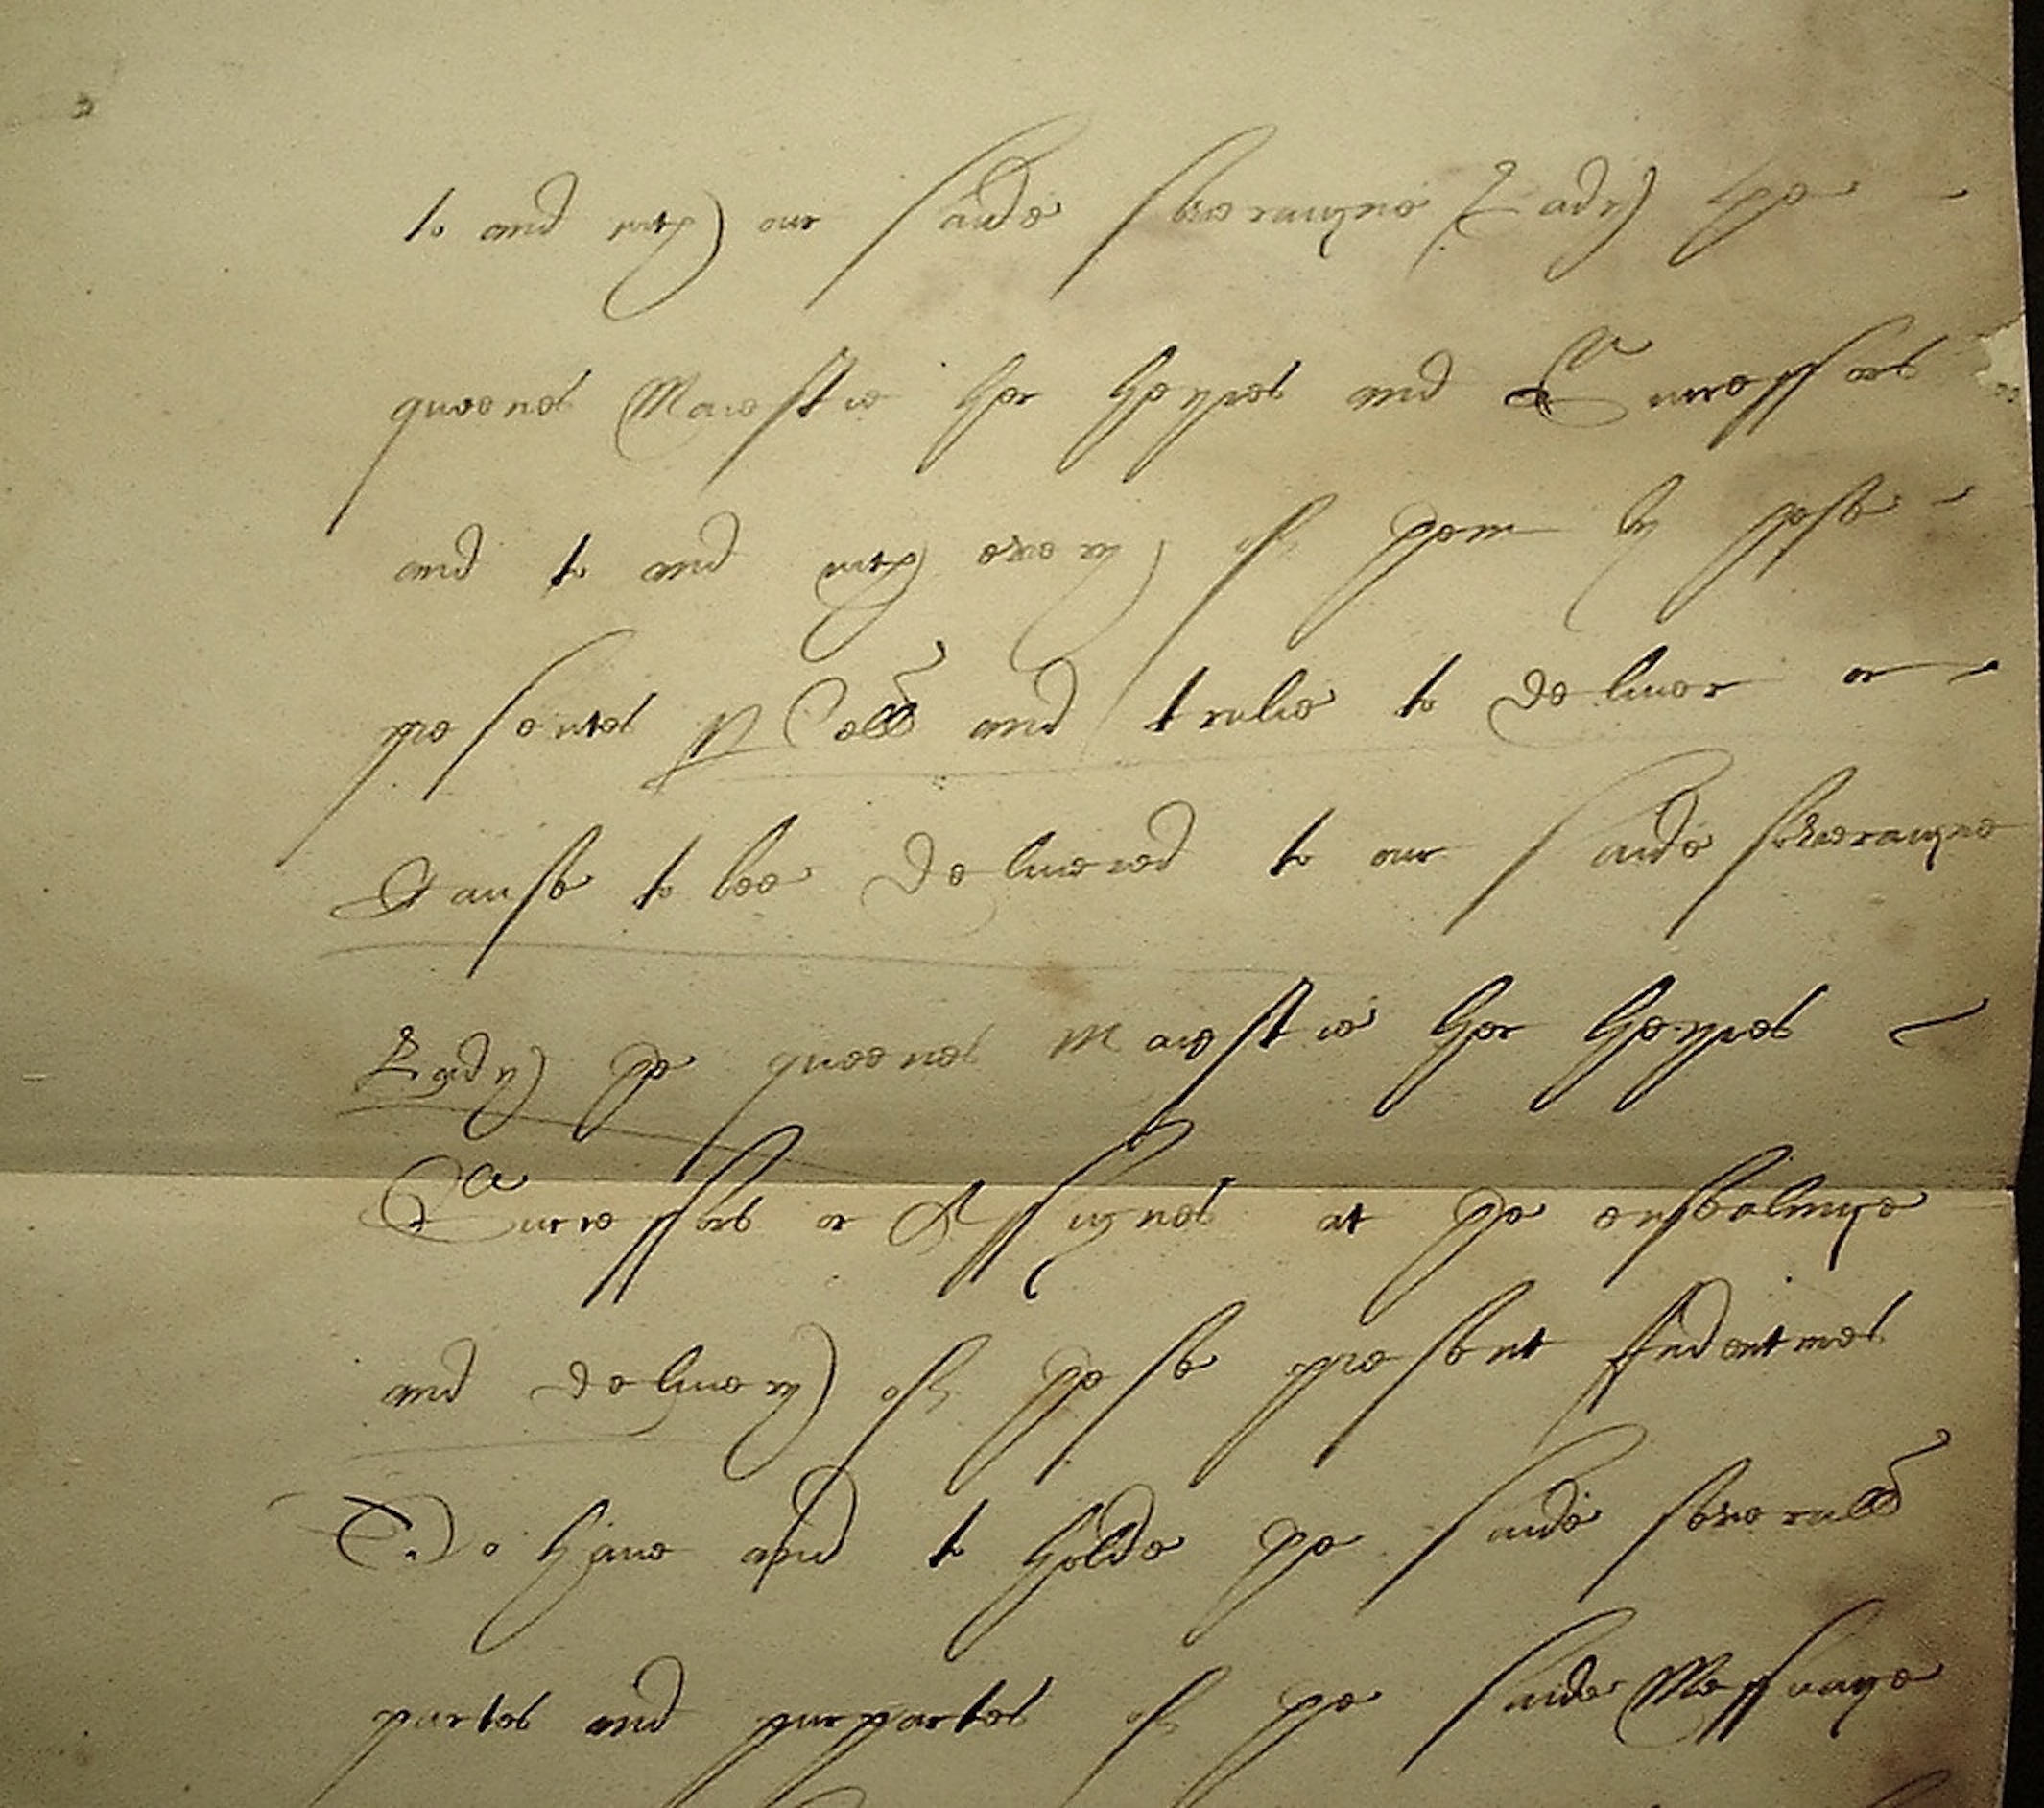 to and with our saide Soveraigne Lady the
queenes Maiestie her heyres and Successors
and to and with every of them by these
presentes well and trulie to deliver or
Cause to bee delivered to our saide Soveraigne
Lady the queenes Maiestie her heyres
Successors or Assignes at the ensealinge
and delivery of these present Indentures
To have and to holde the saide severall
partes and purpartes of the saide Messuage